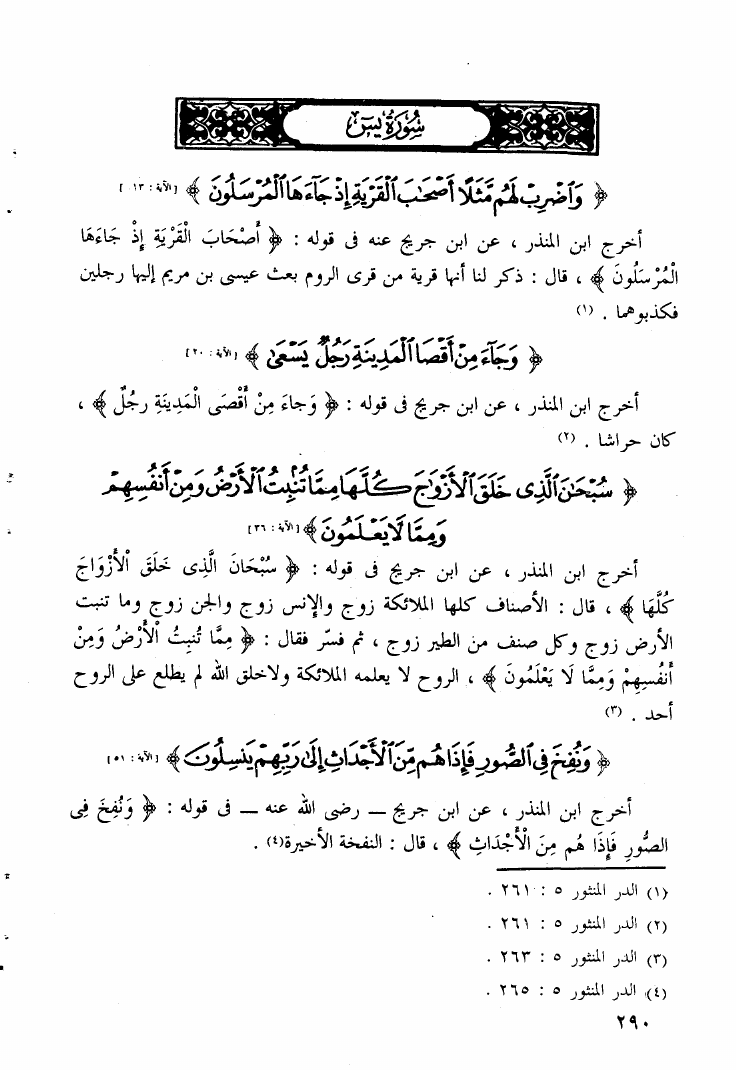 سُورَةُ يسٓ
﴿ وَٱضْرِبْ لَهُم مَّثَلًا أَصْحَٰبَ ٱلْقَرْيَةِ إِذْ جَآءَهَا ٱلْمُرْسَلُونَ ﴾ [الآية : ١٣]
أخرج ابن المنذر ، عن ابن جريج عنه فى قوله : ﴿ أَصْحَابَ الْقَرْيَةِ إِذْ جَاءَهَا
الْمُرْسَلُونَ ﴾ ، قال : ذكر لنا أنها قرية من قرى الروم بعث عيسى بن مريم إليها رجلين
فكذبوهما . (١)
﴿ وَجَآءَ مِنْ أَقْصَا ٱلْمَدِينَةِ رَجُلٌ يَسْعَىٰ ﴾ [الآية : ٢٠]
أخرج ابن المنذر ، عن ابن جريج فى قوله : ﴿ وَجاءَ مِنْ أَقْصَى الْمَدِينَةِ رجُلٌ ﴾ ،
كان حراشا . (٢)
﴿ سُبْحَٰنَ ٱلَّذِى خَلَقَ ٱلْأَزْوَٰجَ كُلَّهَا مِمَّا تُنۢبِتُ ٱلْأَرْضُ وَمِنْ أَنفُسِهِمْ
وَمِمَّا لَا يَعْلَمُونَ ﴾ [الآية : ٣٦]
أخرج ابن المنذر ، عن ابن جريج فى قوله : ﴿ سُبْحَانَ الَّذِى خَلَقَ الْأَزْوَاجَ
كُلَّهَا ﴾ ، قال : الأصناف كلها الملائكة زوج والإنس زوج والجن زوج وما تنبت
الأرض زوج وكل صنف من الطير زوج ، ثم فسّر فقال : ﴿ مِمَّا تُنبِتُ الْأَرْضُ وَمِنْ
أَنْفُسِهِمْ وَمِمَّا لَا يَعْلَمُونَ ﴾ ، الروح لا يعلمه الملائكة ولاخلق الله لم يطلع على الروح
أحد . (٣)
﴿ وَنُفِخَ فِى ٱلصُّورِ فَإِذَا هُم مِّنَ ٱلْأَجْدَاثِ إِلَىٰ رَبِّهِمْ يَنسِلُونَ ﴾ [الآية : ٥١]
أخرج ابن المنذر ، عن ابن جريج — رضى الله عنه — فى قوله : ﴿ وَنُفِخَ فِى
الصُّورِ فَإِذَا هُم مِنَ الْأَجْدَاثِ ﴾ ، قال : النفخة الأخيرة(٤) .
(١) الدر المنثور ٥ : ٢٦١ .
(٢) الدر المنثور ٥ : ٢٦١ .
(٣) الدر المنثور ٥ : ٢٦٣ .
(٤) الدر المنثور ٥ : ٢٦٥ .
٢٩٠